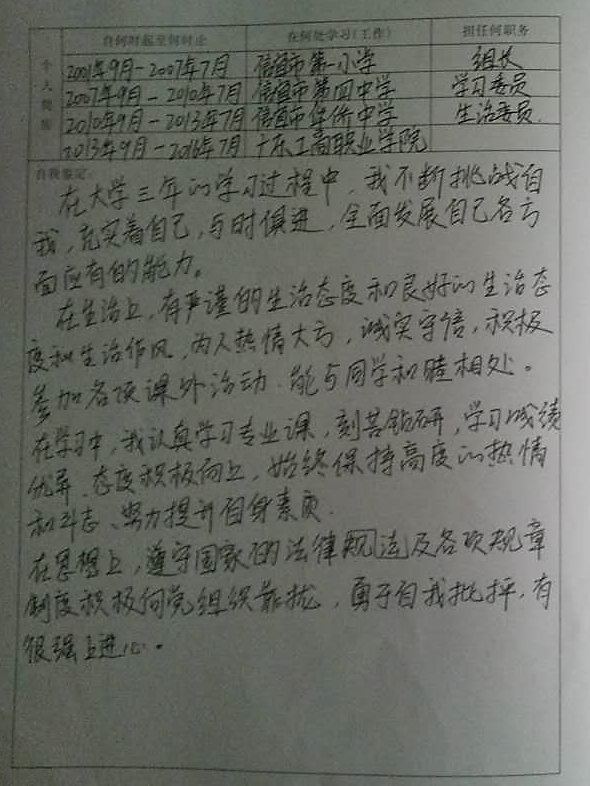 自何时起至何时止 在何处学习(工作) 担任何职务
个人简历
2001年9月-2007年7月 信宜市第一小学 组长
2007年9月-2010年7月 信宜市第四中学 学习委员
2010年9月-2013年7月 信宜市华侨中学 生活委员.
2013年9月-2016年7月 广东工商职业学院
自我鉴定:
在大学三年的学习过程中,我不断挑战自
我,充实着自己,与时俱进,全面发展自己各方
面应有的能力。
在生活上,有严谨的生活态度和良好的生活态
度和生活作风,为人热情大方,诚实守信,积极
参加各项课外活动.能与同学和睦相处。
在学习中,我认真学习专业课,刻苦钻研,学习成绩
优异.态度积极向上,始终保持高度的热情
和斗志、努力提升自身素质.
在思想上,遵守国家的法律规法及各项规章
制度积极向党组织靠拢,勇于自我批评,有
很强上进心.